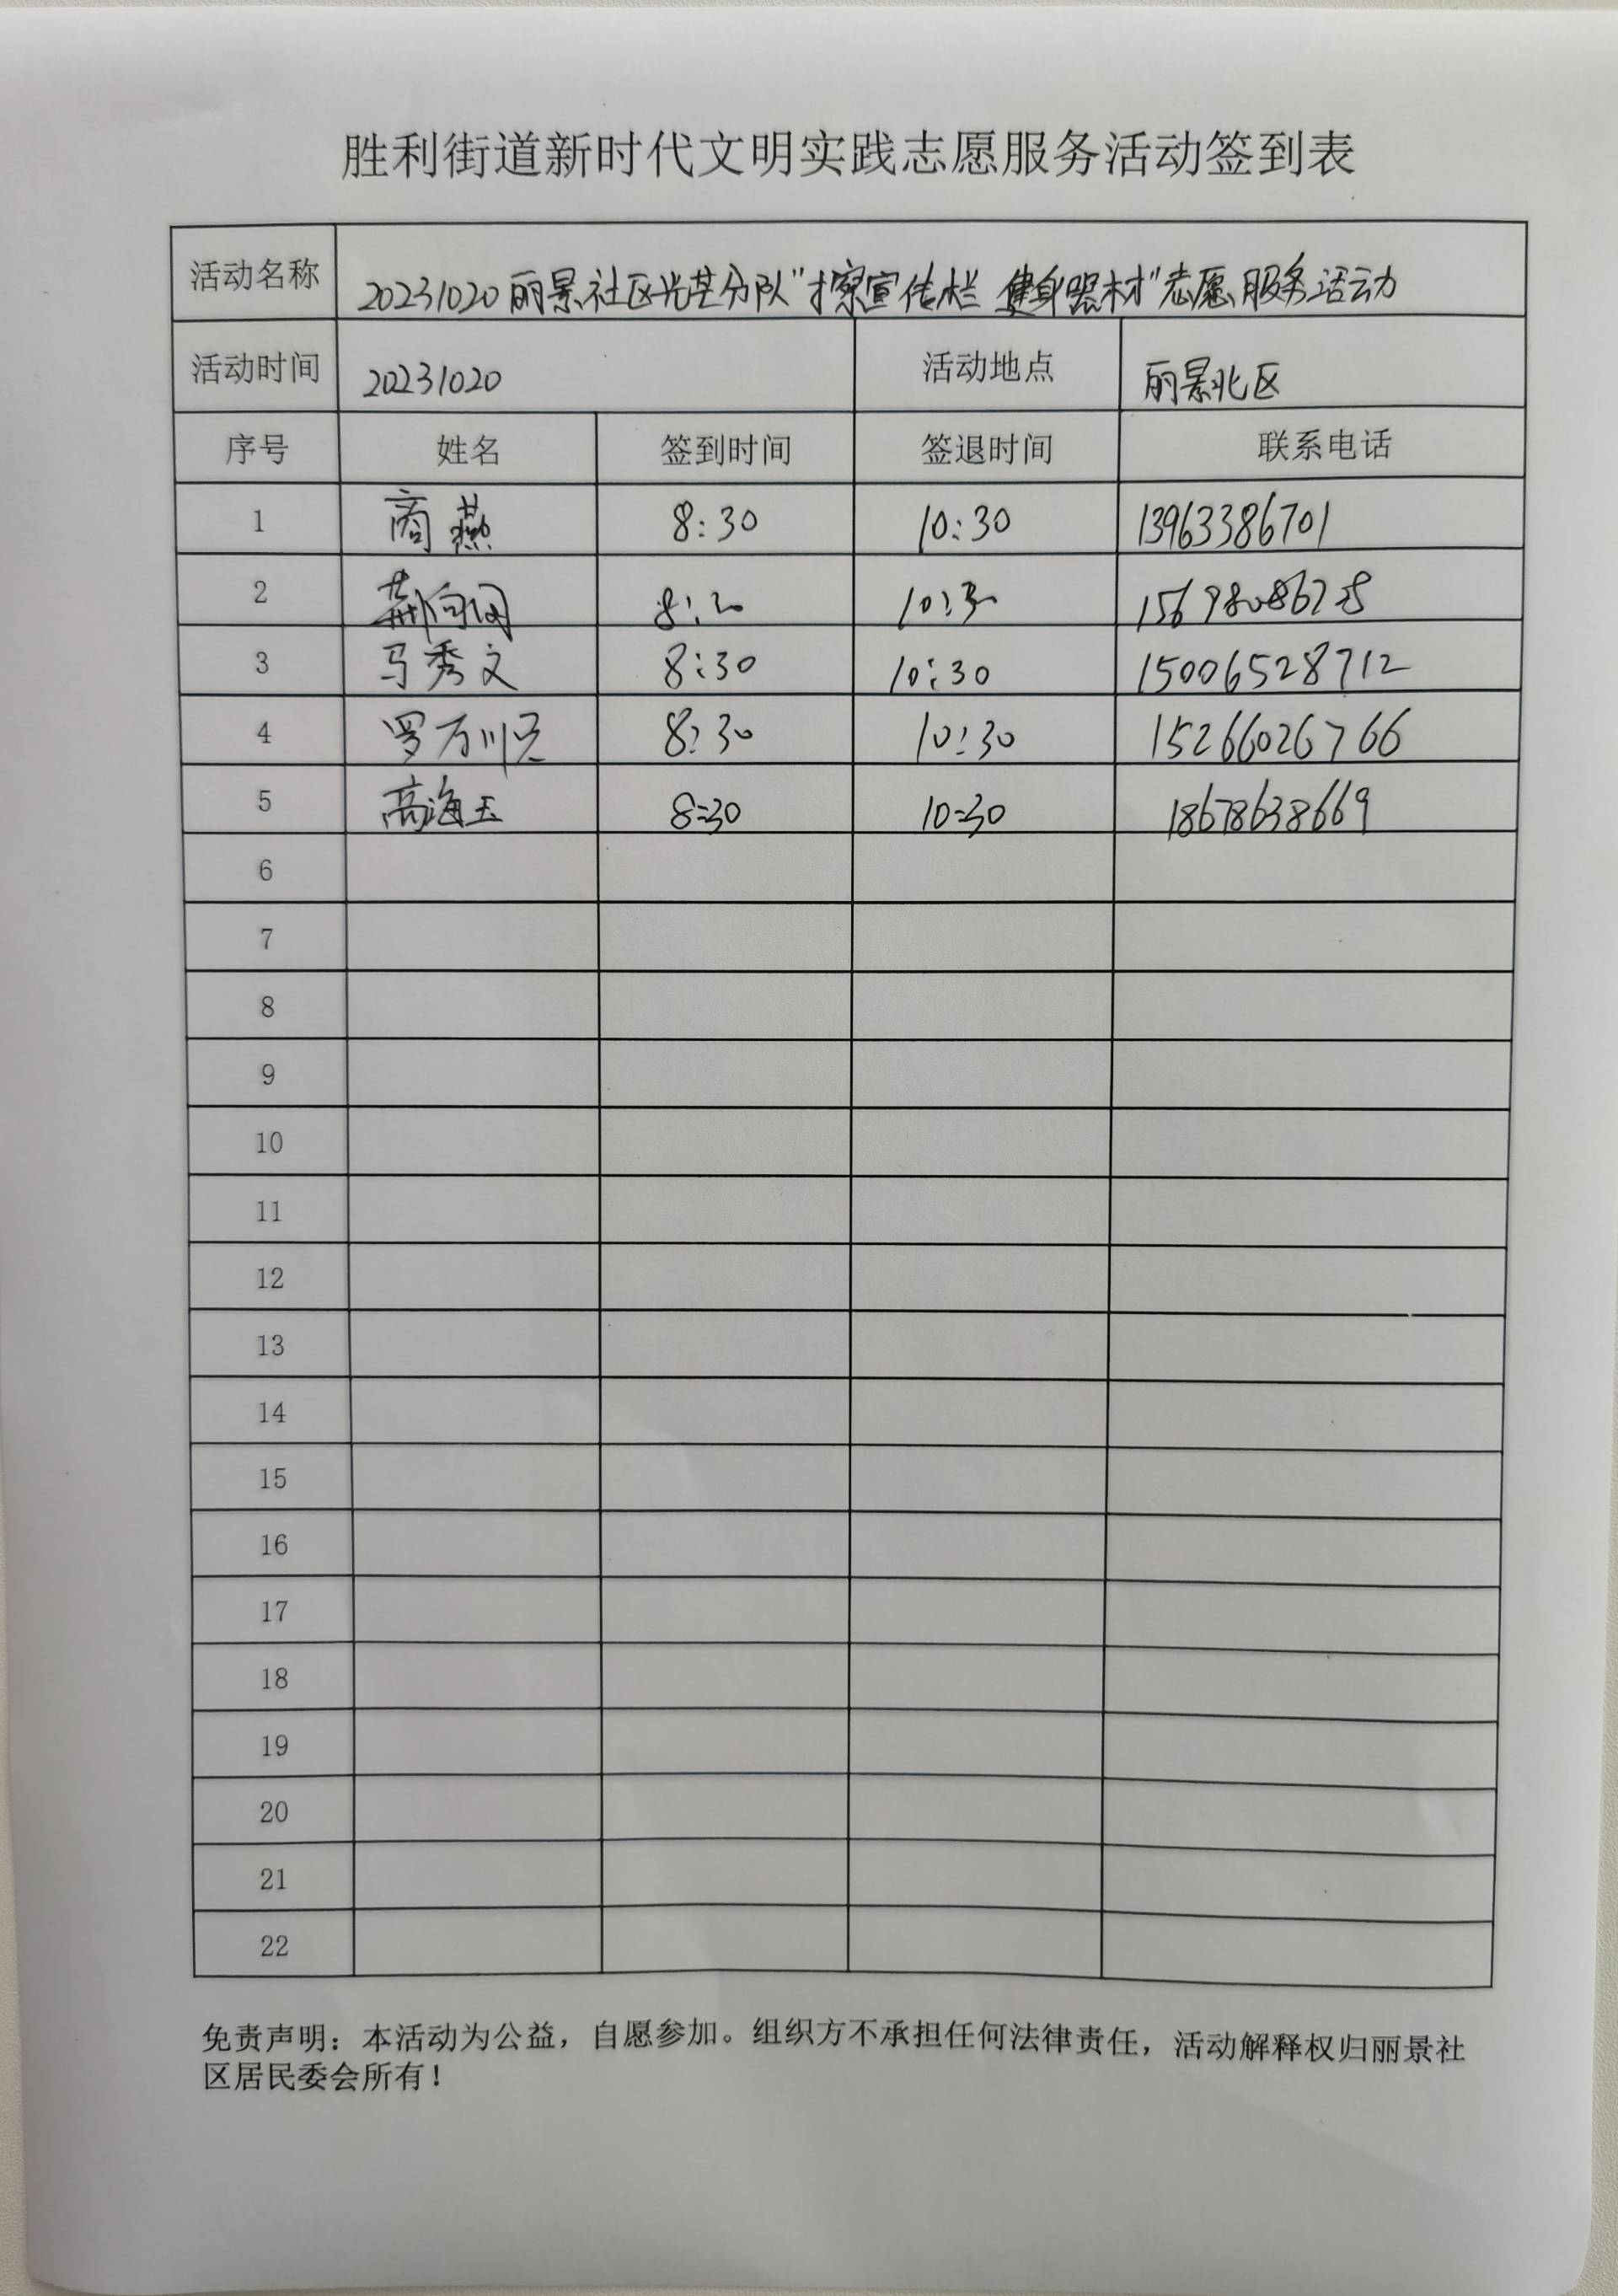 胜利街道新时代文明实践志愿服务活动签到表
活动名称 20231020丽景社区光芒分队"擦宣传栏 健身器材"志愿服务活动
活动时间 20231020 活动地点 丽景北区
序号 姓名 签到时间 签退时间 联系电话
1 商燕 8:30 10:30 13963386701
2 10:30
3 马秀文 8:30 10:30 15006528712
4 8:30 10:30 15266026766
5 高海玉 8:30 10:30 18678638669
6
7
8
9
10
11
12
13
14
15
16
17
18
19
20
21
22
免责声明：本活动为公益，自愿参加。组织方不承担任何法律责任，活动解释权归丽景社
区居民委会所有！